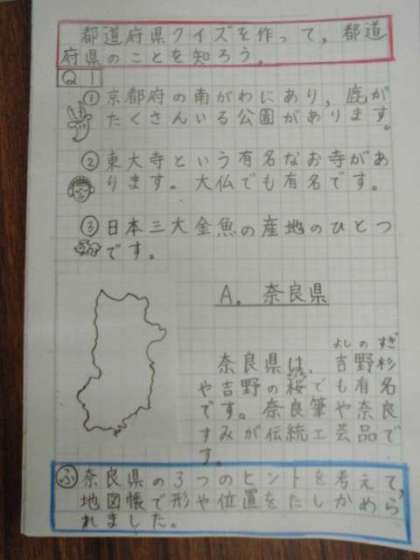 都道府県クイズを作って、都道
府県のことを知ろう。
Q1
①京都府の南がわにあり、鹿が
たくさんいる公園があります。
②東大寺という有名なお寺があ
ります。大仏でも有名です。
③日本三大金魚の産地のひとつ
です。
A. 奈良県
よしの すぎ
奈良県は、吉野杉
や吉野の桜でも有名
です。奈良筆や奈良
すみが伝統工芸品で
す。
ふ 奈良県の3つのヒントを考えて、
地図帳で形や位置をたしかめら
れました。